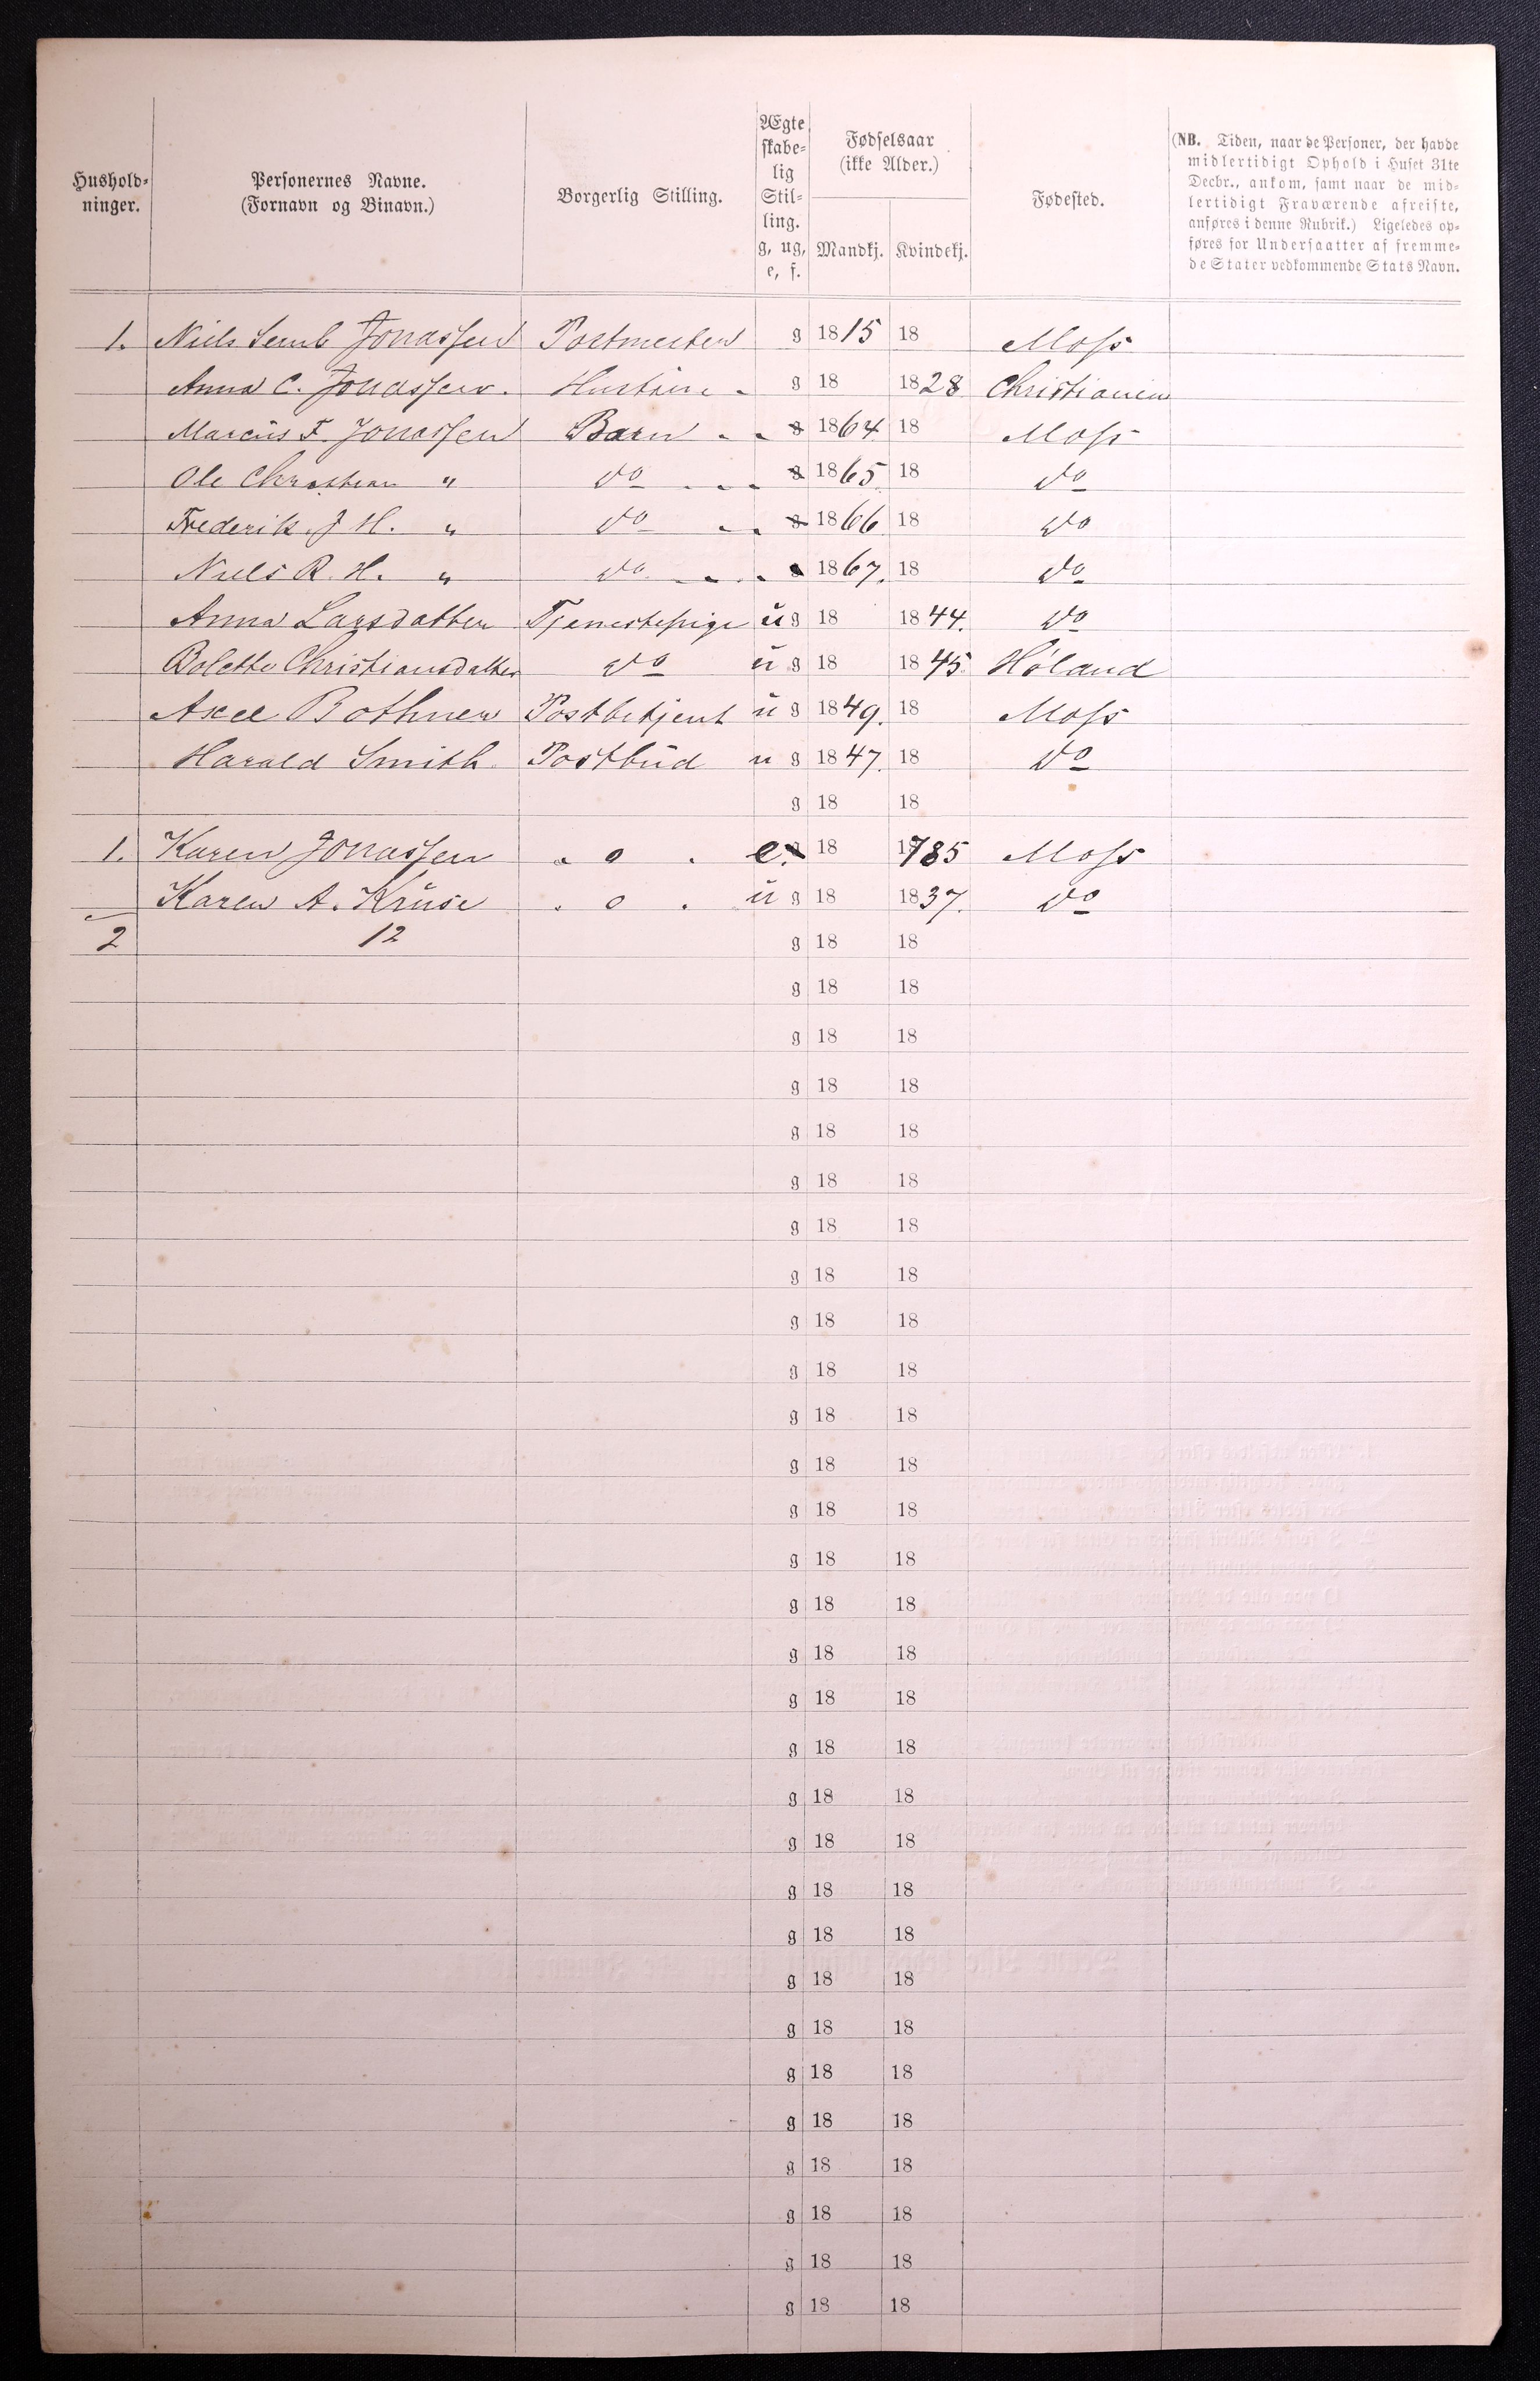 Hushold-
ninger.
Personernes Navne.
(Fornavn og Binavn.)
Borgerlig Stilling.
Ægte
skabe-
lig
Stil-
ling.
g, ug,
e, f.
Fødselsaar
(ikke Alder.)
Mandkj. Kvindekj.
Fødested.
(NB. Tiden, naar de Personer, der havde
midlertidigt Ophold i Huset 31te
Decbr., ankom, samt naar de mid-
lertidigt Fraværende afreiste,
anføres i denne Rubrik.) Ligeledes op-
føres for Undersaatter af fremme-
de Stater vedkommende Stats Navn.
1. Niels Semb Jonassen Postmester g 1815 18 Moss
Anna C. Jonassen. Hustru - g 18 1828 Christiania
Marcus F. Jonassen Barn - - g 1864 18 Moss
Ole Christian " do - - - g 1865 18 do
Frederik J H. " do - - g 1866 18 do
Niels R. H. " do - - - g 1867. 18 do
Anna Larsdatter Tjenestepige u g 18 1844. do
Bolette Christiansdatter do u g 18 1845. Høland
Axel Bothner Postbetjent u g 1849. 18 Moss
Harald Smith Postbud u g 1847. 18 do
g 18 18
1. Karen Jonassen " o " e. 18 1785 Moss
Karen A. Kruse " o " u g 18 1837. do
2 12 g 18 18
g 18 18
g 18 18
g 18 18
g 18 18
g 18 18
g 18 18
g 18 18
g 18 18
g 18 18
g 18 18
g 18 18
g 18 18
g 18 18
g 18 18
g 18 18
g 18 18
g 18 18
g 18 18
g 18 18
g 18 18
g 18 18
g 18 18
g 18 18
g 18 18
g 18 18
g 18 18
g 18 18
g 18 18
g 18 18